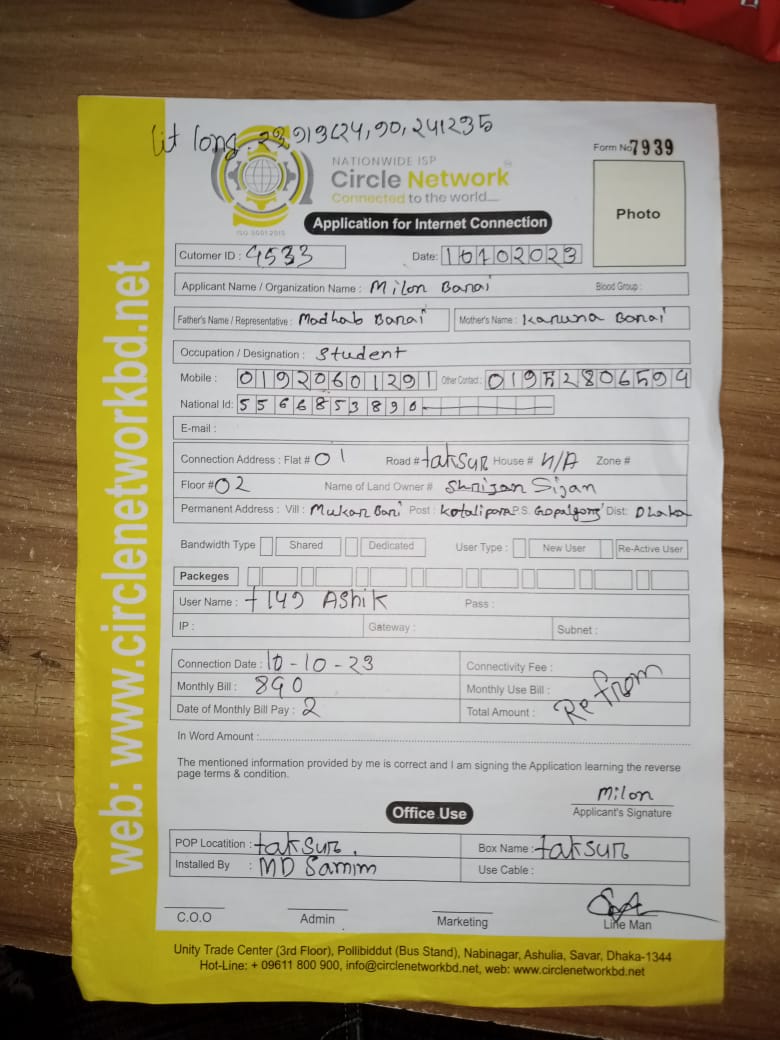 lit long. 23,913824,90,241235
Form No 7939
NATIONWIDE ISP
Circle Network
Connected to the world...
ISO 9001:2015
Application for Internet Connection
Photo
Cutomer ID : 4533 Date: 10102023
Applicant Name / Organization Name : Milon Banai Blood Group :
Father's Name / Representative : Madhab Banai Mother's Name : Karuna Banai
Occupation / Designation : Student
Mobile : 01920601291 Other Contact : 01952806594
National Id: 5566853890
E-mail :
Connection Address : Flat # 01 Road # taksur House # N/A Zone #
Floor # 02 Name of Land Owner # Shrijan Sijan
Permanent Address : Vill : Mukan Bari Post : Kotalipara P.S. Gopalgonj Dist: Dhaka
Bandwidth Type Shared Dedicated User Type : New User Re-Active User
Packeges
User Name : Ashik Pass :
IP : Gateway : Subnet :
Connection Date : 10-10-23 Connectivity Fee :
Monthly Bill : 890 Monthly Use Bill :
Date of Monthly Bill Pay : 2 Total Amount :
Re from
In Word Amount :
The mentioned information provided by me is correct and I am signing the Application learning the reverse
page terms & condition.
Milon
Applicant's Signature
Office Use
POP Locatition : taksur. Box Name : taksur
Installed By : MD Samim Use Cable :
C.O.O Admin Marketing Line Man
Unity Trade Center (3rd Floor), Pollibiddut (Bus Stand), Nabinagar, Ashulia, Savar, Dhaka-1344
Hot-Line: + 09611 800 900, info@circlenetworkbd.net, web: www.circlenetworkbd.net
web: www.circlenetworkbd.net